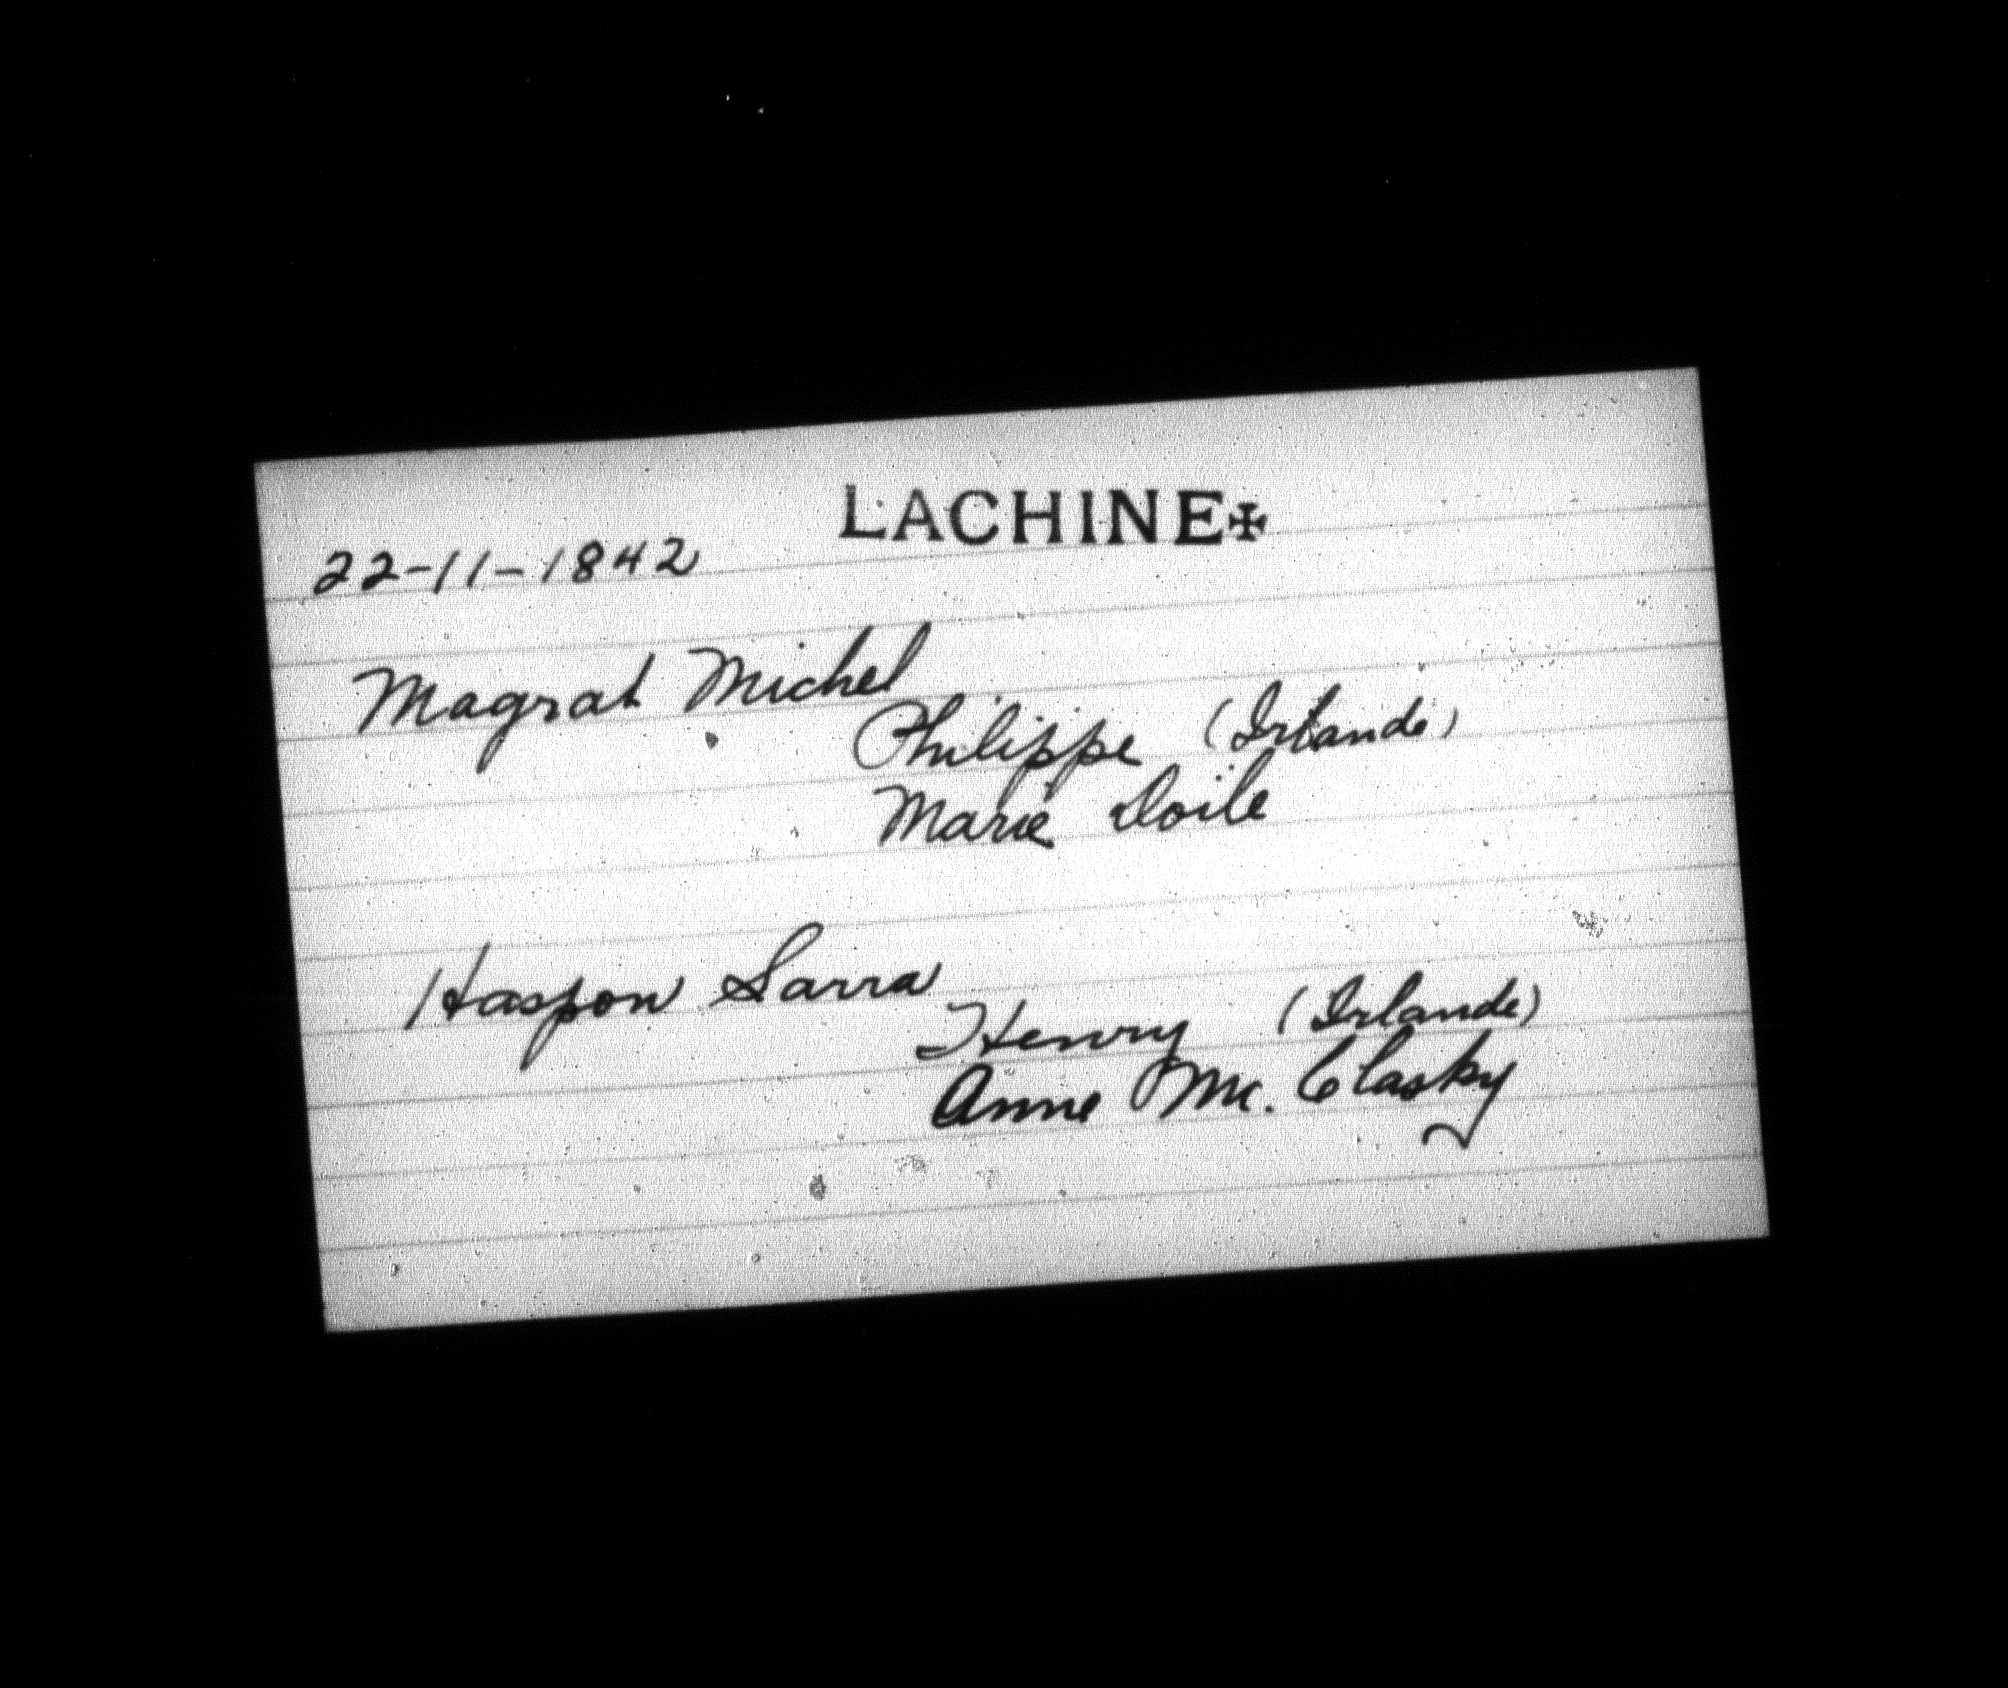 LACHINE✠
22-11-1842
Magrat Michel
Philippe (Irlande)
Marie Doile
Haspon Sarra
Henry (Irlande)
Anne Mc. Clasky